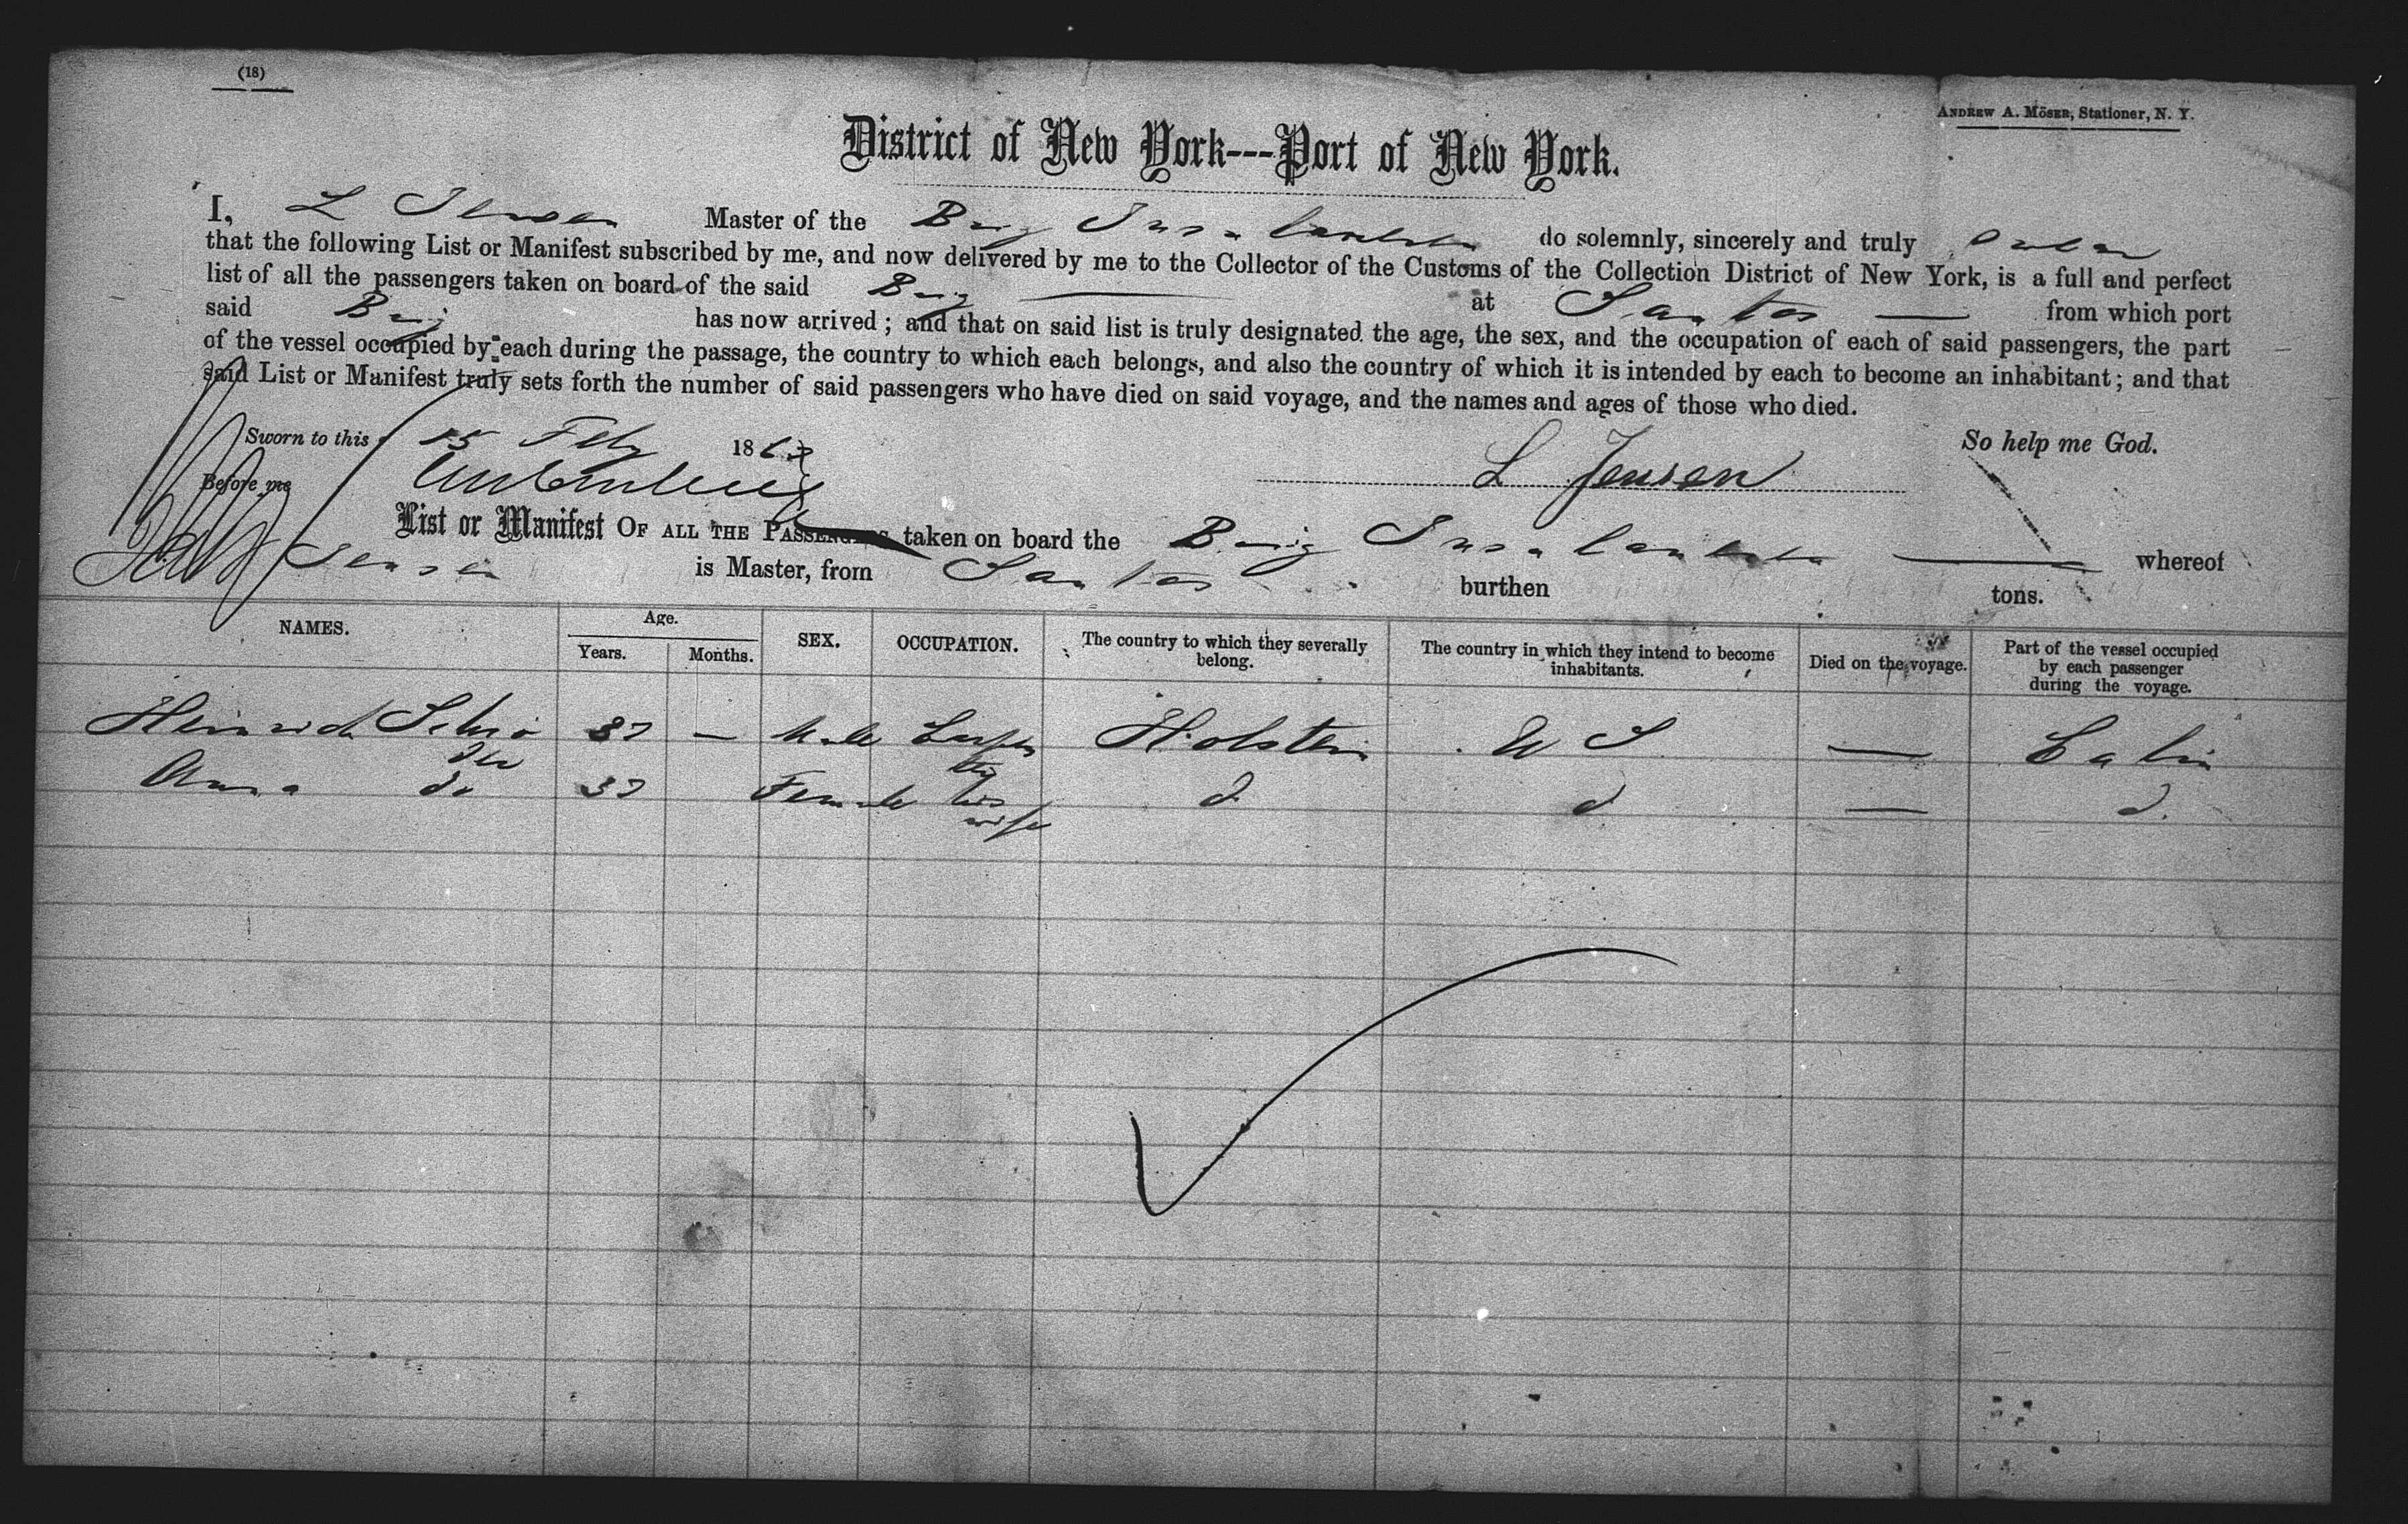 (18)
ANDREW A. MÖSER, Stationer, N. Y.
District of New York---Port of New York.
I, L Jensen Master of the Brig do solemnly, sincerely and truly swear
that the following List or Manifest subscribed by me, and now delivered by me to the Collector of the Customs of the Collection District of New York, is a full and perfect
list of all the passengers taken on board of the said Brig at Santos from which port
said Brig has now arrived; and that on said list is truly designated the age, the sex, and the occupation of each of said passengers, the part
of the vessel occupied by each during the passage, the country to which each belongs, and also the country of which it is intended by each to become an inhabitant; and that
said List or Manifest truly sets forth the number of said passengers who have died on said voyage, and the names and ages of those who died.
Sworn to this 15 Feby 186 So help me God.
Before me L Jensen
List or Manifest OF ALL THE PASSENGERS taken on board the Brig whereof
Jensen is Master, from Santos burthen tons.
NAMES. Age. Years. Months. SEX. OCCUPATION. The country to which they severally belong. The country in which they intend to become inhabitants. Died on the voyage. Part of the vessel occupied by each passenger during the voyage.
Heinrich Schröder — Male Holstein U S — Cabin
Anna do Female his wife d d — d